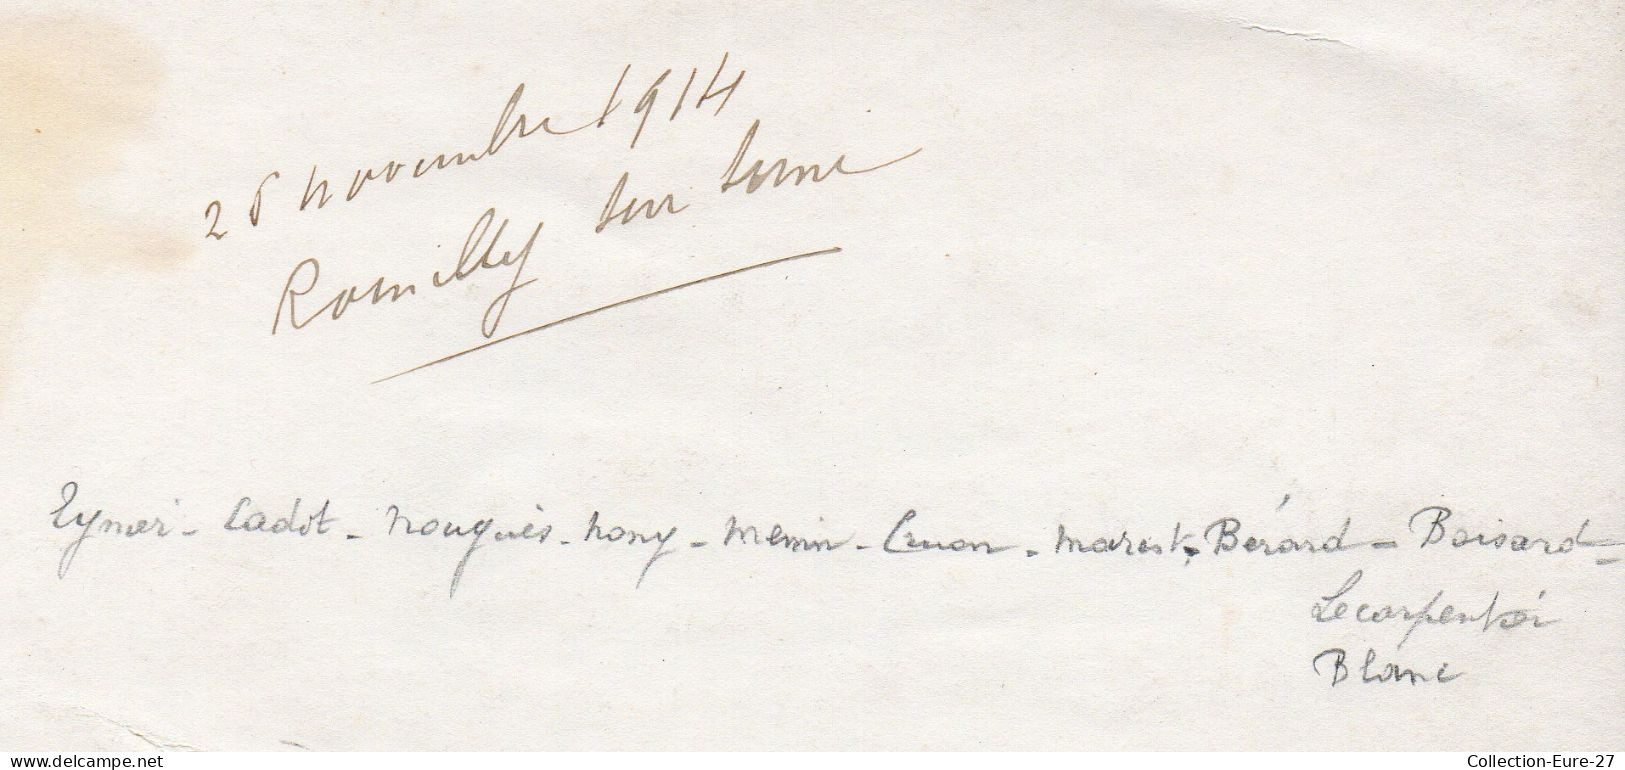 26 novembre 1914
Romilly sur Seine
Eymer - Cadot - Nouguès - Nony - Memin - Cruon - Marest - Bérard - Boisard -
Lecarpentier
Blanc
delcampe.net
Collection-Eure-27